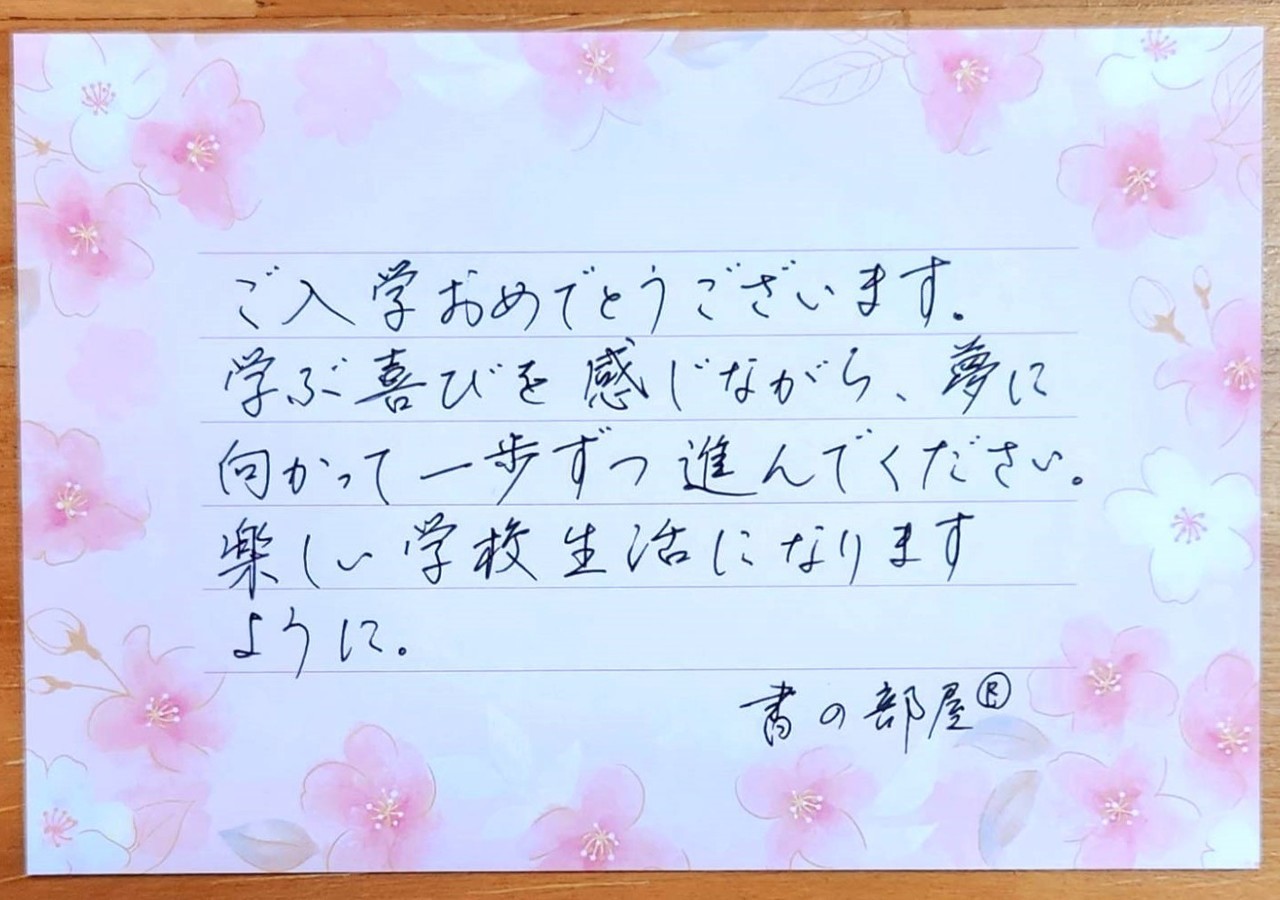 ご入学おめでとうございます。
学ぶ喜びを感じながら、夢に
向かって一歩ずつ進んでください。
楽しい学校生活になります
ように。
書の部屋®